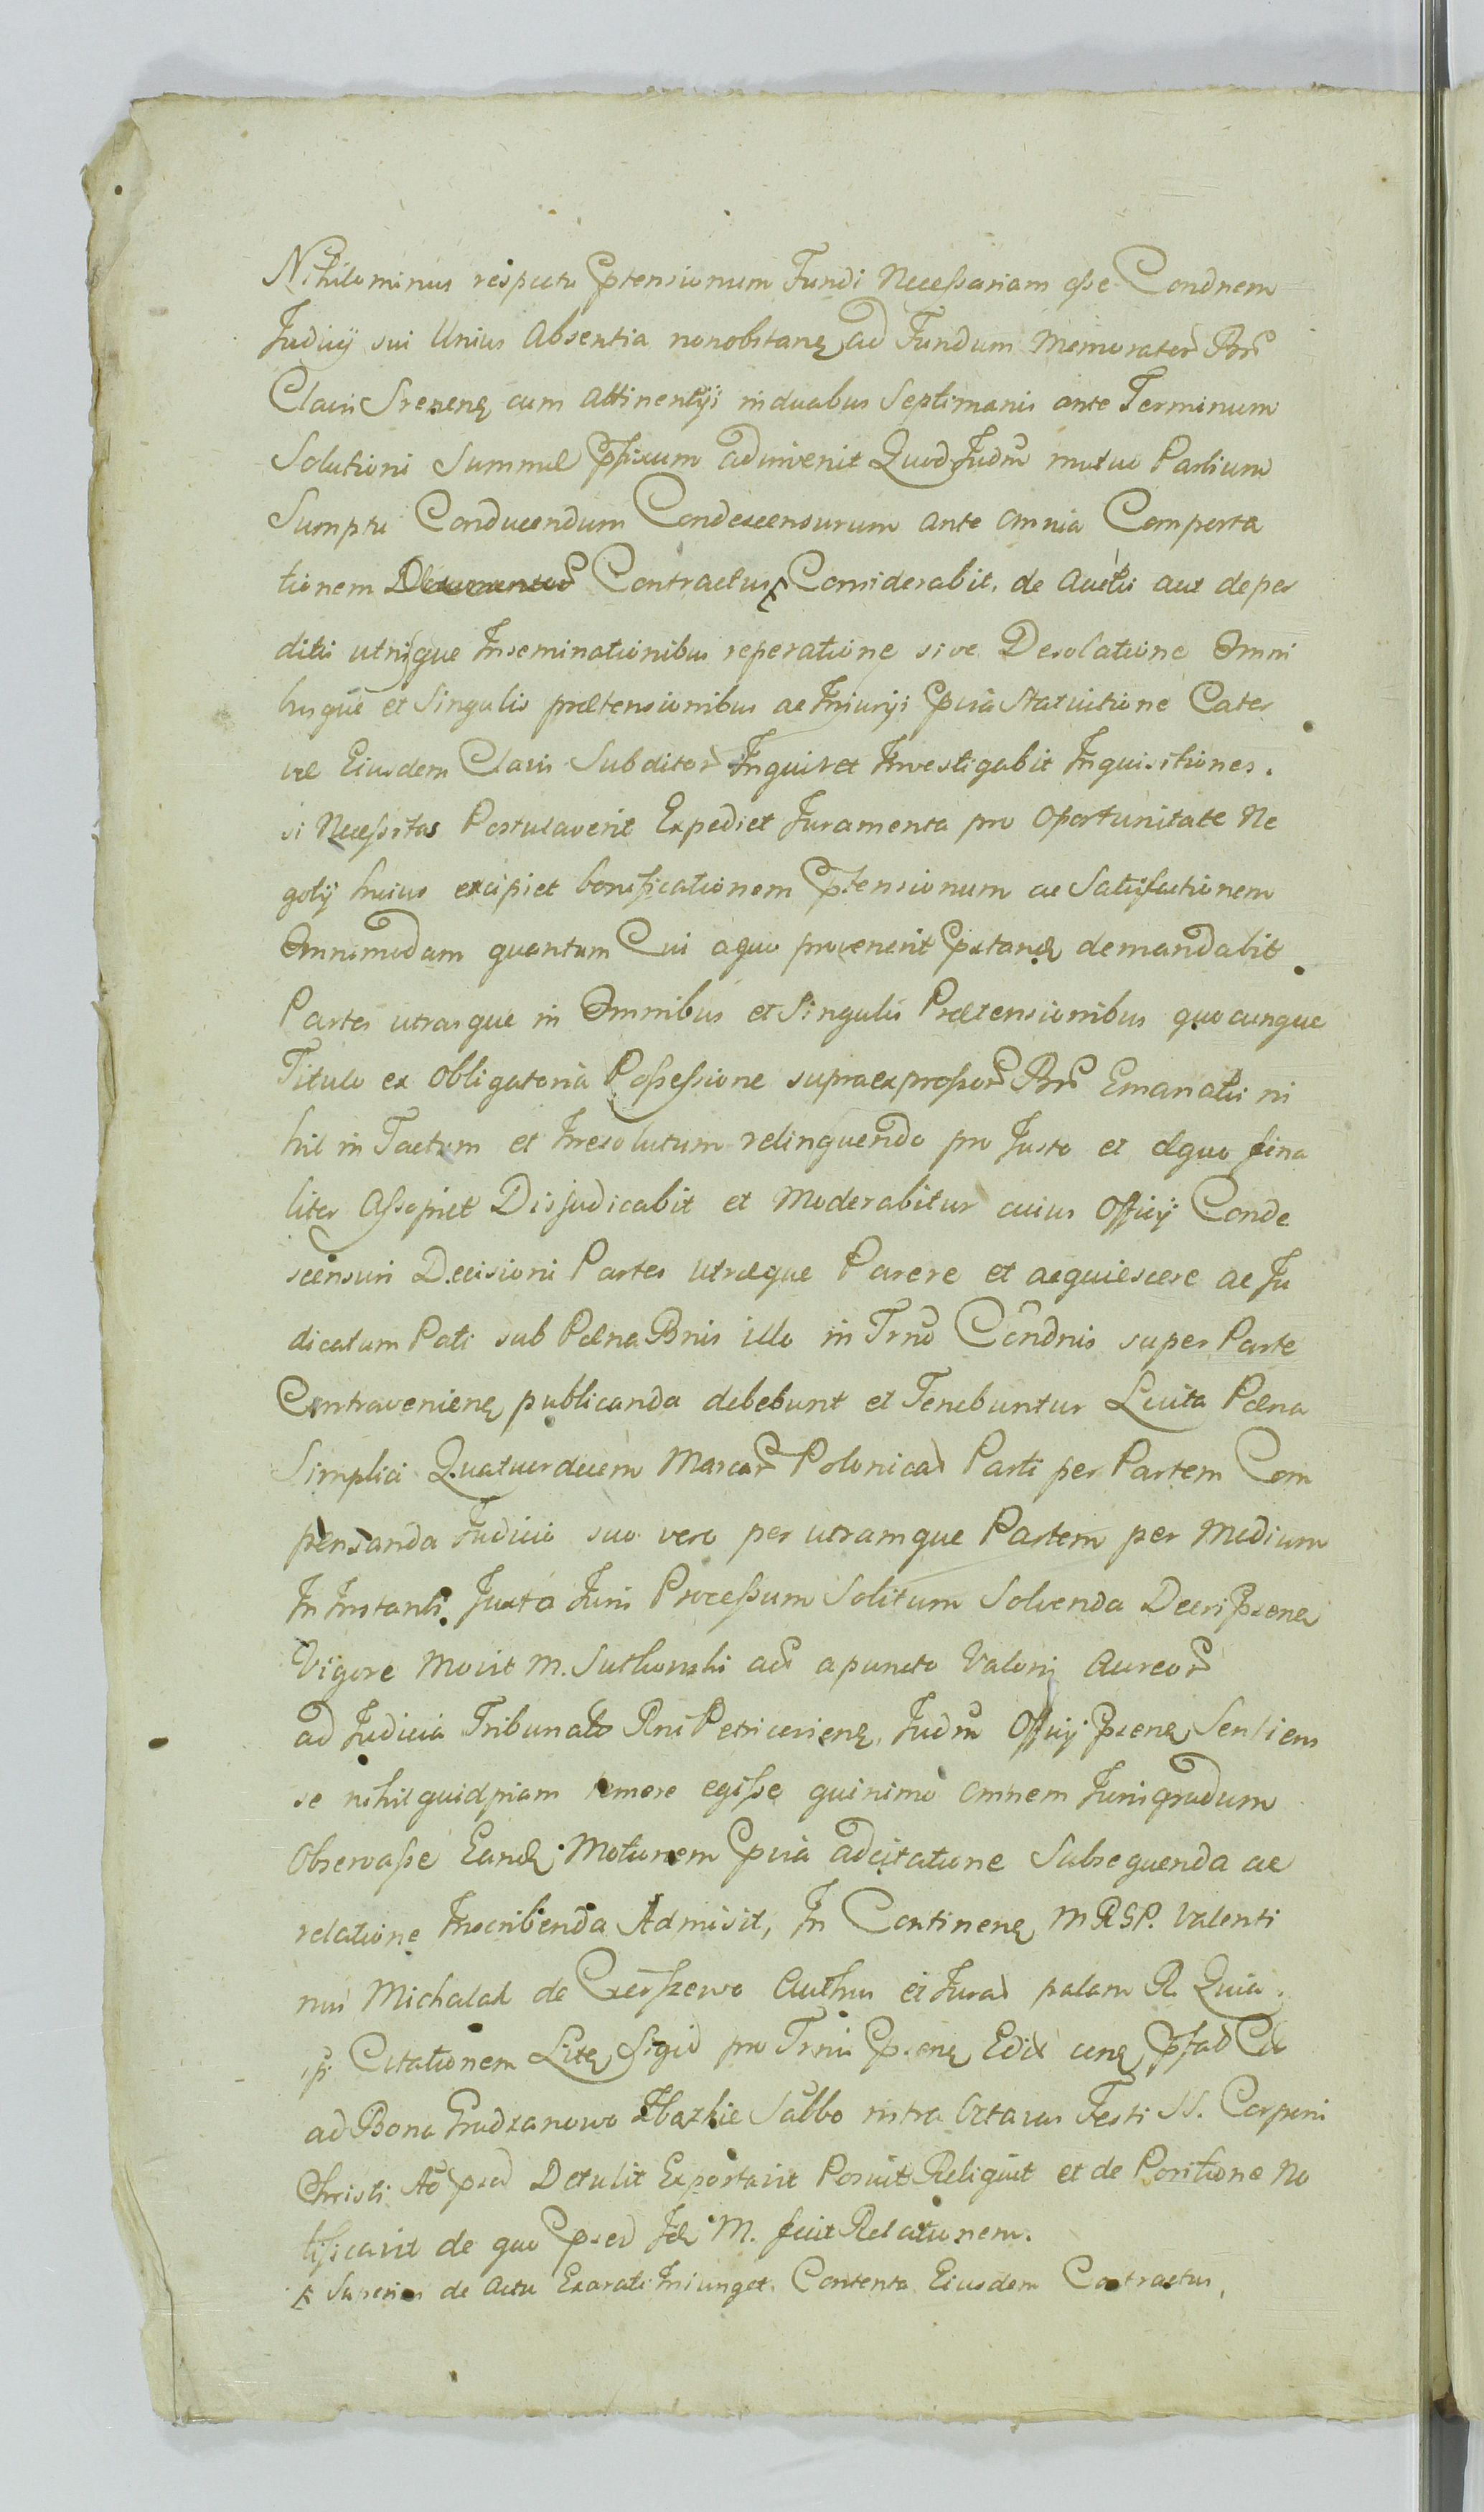 Nihilominus respectu Ptensionum Fundi Necessariam esse Condnem
Judicij sui Unius Absentia nonobstan ad Fundum Memorator Bn
Clavis Srenen cum Attinentijs in duabus Septimanis ante Terminum
Solutioni Summae Pfixum adinvenit Quod Judm mutuo Partium
Sumptu Conducendum Condescensurum ante omnia Comporta
tionem Contractus Considerabit. de Auctis aut deper
ditis utrisque Inseminationibus reperatione sive Desolatione Omni
busque et Singulis praetensionibus ac Injurijs Pvia Statuitione Cater
vae Eiusdem Clavis Subditor Inquiret Investigabit Inquisitiones.
si Necessitas Postulaverit Expediet Juramenta pro Oportunitate Ne
gotij huius excipiet bonificationem Ptensionum ac Satisfactionem
Omnimodam quantum Cui a quo provenerit Pstan demandabit
Partes utrasque in Omnibus et Singulis Praetensionibus quocunque
Titulo ex Obligatoria Possessione supraexpressor Bn Emanatis ni
hil in Tactum et Irresolutum relinquendo pro Justo et aequo fina
liter Assopiet Disjudicabit et Moderabitur cuius Officij Conde
scensuri Decisioni Partes utraeque Parere et acquiescere ac Ju
dicatum Pati sub Paena Bnis illo in Trno Condnis super Parte
Contravenien publicanda debebunt et Tenebuntur Luita Paena
Simplici Quatuordecem Marcar Polonical Parti per Partem Com
pensanda Judicio suo vero per utramque Partem per Medium
In Instanti Juxta Juris Processum Solitum Solvenda Decri Psen
Vigore Movit M. Suthowski act a puncto Valoris Aureor
ad Judicia Tribunal Rni Petricovien, Judm Officij Psen Sentiens
se nihil quidpiam temere egisse quinimo omnem Juris gradum
Observasse Eand Motionem Pvia adcitatione Subsequenda ac
relatione Inscribenda Admisit, In Continen M RSP. Valenti
nus Michalak de Authus et Jurad palam R. Quia
Citationem Lit Sigid pro Trnis Psen Edit
ad Bona Grudzanowo Sabbo intra Octavas Festi SS. Corporis
Christi Ao psed Detulit Exportavit Posuit Reliquit et de Positione No
tificavit de quo Psed M. fecit Relationem.
Superius de Actu Exarati Iniunget. Contenta Eiusdem Contractus,